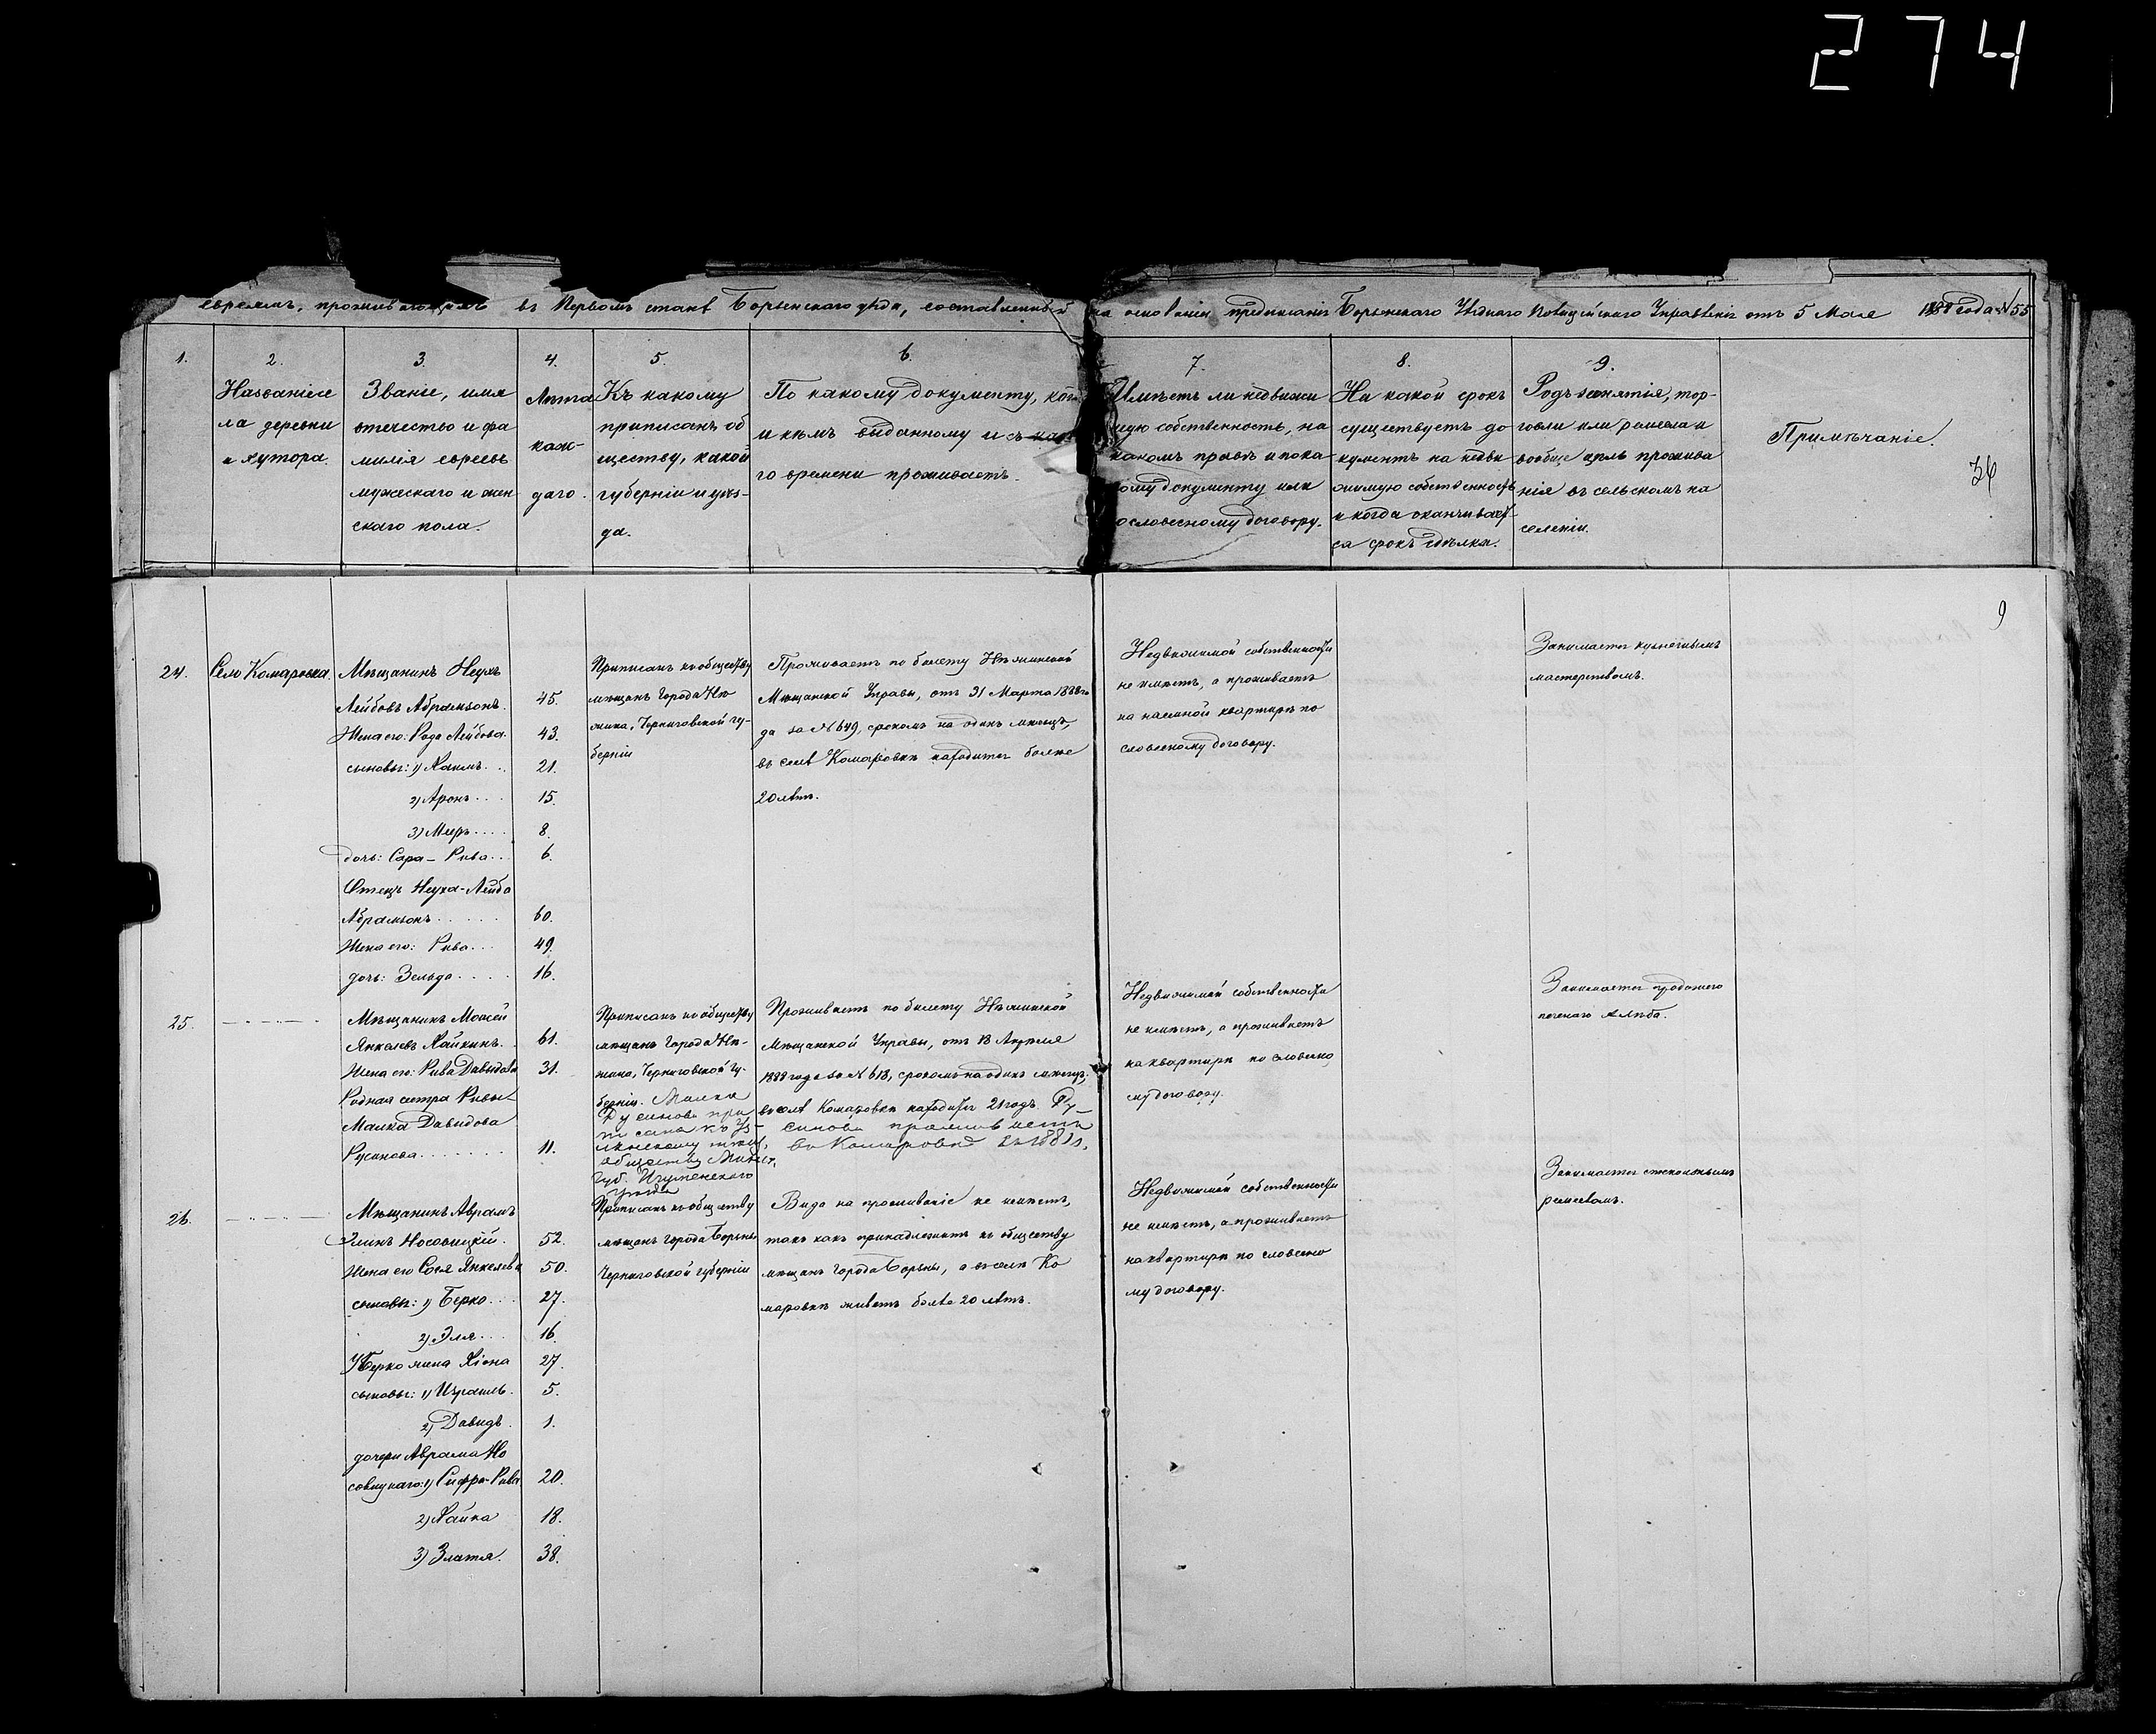 274
евреямъ, проживающимъ въ Первомъ станѣ Борзенскаго уѣзда, составленный на основаніи предписанія Борзенскаго Уѣзднаго Полицейскаго Управленія отъ 5 Мая 1888 года №55
1.
2.
Названіе се
ла деревни
и хутора.
3.
Званіе, имя
отчество и фа
милія евреевъ
мужескаго и жен
скаго пола.
4.
Лѣта
каж-
даго.
5.
Къ какому
приписанъ об
ществу, какой
губерніи и уѣз-
да.
6.
По какому документу, когда
и кѣмъ выданному и съ како
го времени проживаетъ.
7.
Имѣетъ ли недвижи
мую собственность, на
какомъ правѣ и по ка-
кому документу или
словесному договору.
8.
На какой срокъ
существуетъ до
кументъ на недви
жимую собственность
и когда оканчивает
ся срокъ сдѣлки.
9.
Родъ занятія, тор-
говли или ремесла и
вообще цѣль прожива
нія въ сельскомъ на
селеніи.
Примѣчаніе.
36
9
24.
Село Комаровка.
Мѣщанинъ Неухъ
Лейбовъ Абрамсонъ. 45.
Жена его: Рода Лейбова. 43.
сыновья: 1) Хаимъ... 21.
2) Аронъ... 15.
3) Меръ.... 8.
дочь: Сара-Рива... 6.
Отецъ Неуха-Лейба
Абрамсонъ...... 60.
Жена его: Рива... 49.
дочь: Зельда..... 16.
Приписанъ къ обществу
мѣщанъ города Нѣ
жина, Черниговской гу-
берніи
Проживаетъ по билету Нѣжинской
Мѣщанской Управы, отъ 31 Марта 1888 го
да за №649, срокомъ на одинъ мѣсяцъ,
въ селѣ Комаровкѣ находится болѣе
20 лѣтъ.
Недвижимой собственности
не имѣетъ, а проживаетъ
на наемной квартирѣ по
словесному договору.
Занимается кузнечнымъ
мастерствомъ.
25.
Мѣщанинъ Мовсей
Янкелевъ Хайкинъ. 61.
Жена его: Рива Давыдова 31.
Родная сестра Ривы
Малка Давидова
Русинова....... 11.
Приписанъ къ обществу
мѣщанъ города Нѣ-
жина, Черниговской гу-
берніи. Малка
Русинова при
писана къ
обществу Минск.
Губ. Игуменскаго
уѣзда
Проживаетъ по билету Нѣжинской
Мѣщанской Управы, отъ 13 Апреля
1888 года за №618, срокомъ на одинъ мѣсяцъ,
въ селѣ Комаровкѣ находится 21 годъ. Ру-
синова проживаетъ
въ Комаровкѣ съ 1881 г.
Недвижимой собственности
не имѣетъ, а проживаетъ
на квартирѣ по словесно
му договору.
Занимается продажею
печенаго хлѣба.
26.
Мѣщанинъ Аврамъ
Элинъ Носовицкій. 52.
Жена его Сося Янкелева 50.
сыновья: 1) Берко... 27.
2) Эля.... 16.
У Берко жена Хiена 27.
сыновья: 1) Израиль. 5.
2) Давидъ. 1.
дочери Аврама Но
совицкаго: 1) Сифра-Рива 20.
2) Хайка 18.
3) Златя. 38.
Приписанъ къ обществу
мѣщанъ города Борзны
Черниговской губерніи
Вида на проживаніе не имѣетъ,
такъ какъ принадлежитъ къ обществу
мѣщанъ города Борзны, а въ селѣ Ко
маровкѣ живетъ болѣе 20 лѣтъ.
Недвижимой собственности
не имѣетъ, а проживаетъ
на квартирѣ по словесно
му договору.
Занимается стекольнымъ
ремесломъ.